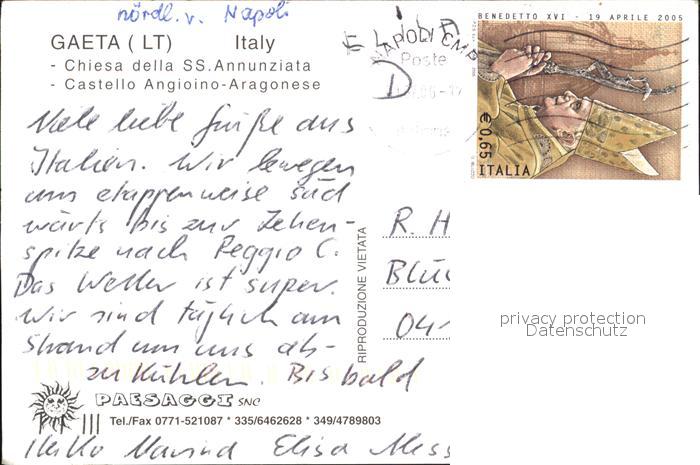 nördl. v. Napoli
GAETA ( LT) Italy
- Chiesa della SS.Annunziata
- Castello Angioino-Aragonese
Viele liebe Grüße aus
Italien. Wir bewegen
uns etappenweise süd
wärts bis zur Zehen-
spitze nach Reggio C.
Das Wetter ist super.
Wir sind täglich am
Strand um uns ab-
zukühlen. Bis bald
PAESAGGI SNC
Tel./Fax 0771-521087 * 335/6462628 * 349/4789803
Elisa
RIPRODUZIONE VIETATA
NAPOLI CMP
Poste
BENEDETTO XVI - 19 APRILE 2005
€ 0,65
ITALIA
R. H
Blü
04-
privacy protection
Datenschutz